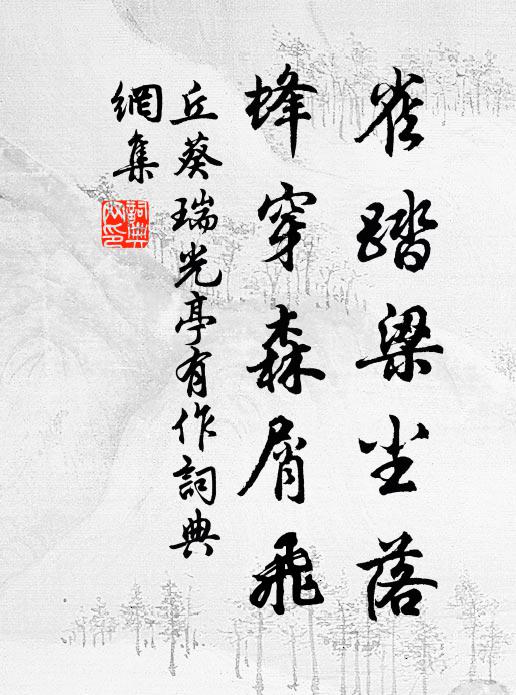 雀踏梁尘落
蜂穿森屑飛
丘葵瑞光亭有作詞典
網集